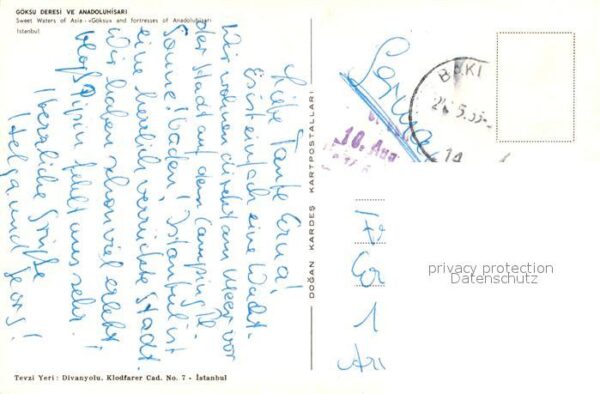 GÖKSU DERESİ VE ANADOLUHİSARI
Sweet Waters of Asia «Göksu» and fortresses of Anadoluhisarı
İstanbul
Liebe Tante Erna!
Es ist einfach eine Wucht.
Wir wohnen direkt am Meer vor
der Stadt auf dem Campingpl.
Sonne! baden! Istanbul ist
eine herrlich verrückte Stadt.
Wir haben schon viel erlebt!
bloß Pipin fehlt uns sehr.
herzliche Grüße
Helga und Georg!
DOĞAN KARDEŞ KARTPOSTALLARI
BAKI
10. Aug
14
1
privacy protection
Datenschutz
Tevzi Yeri : Divanyolu, Klodfarer Cad. No. 7 - İstanbul